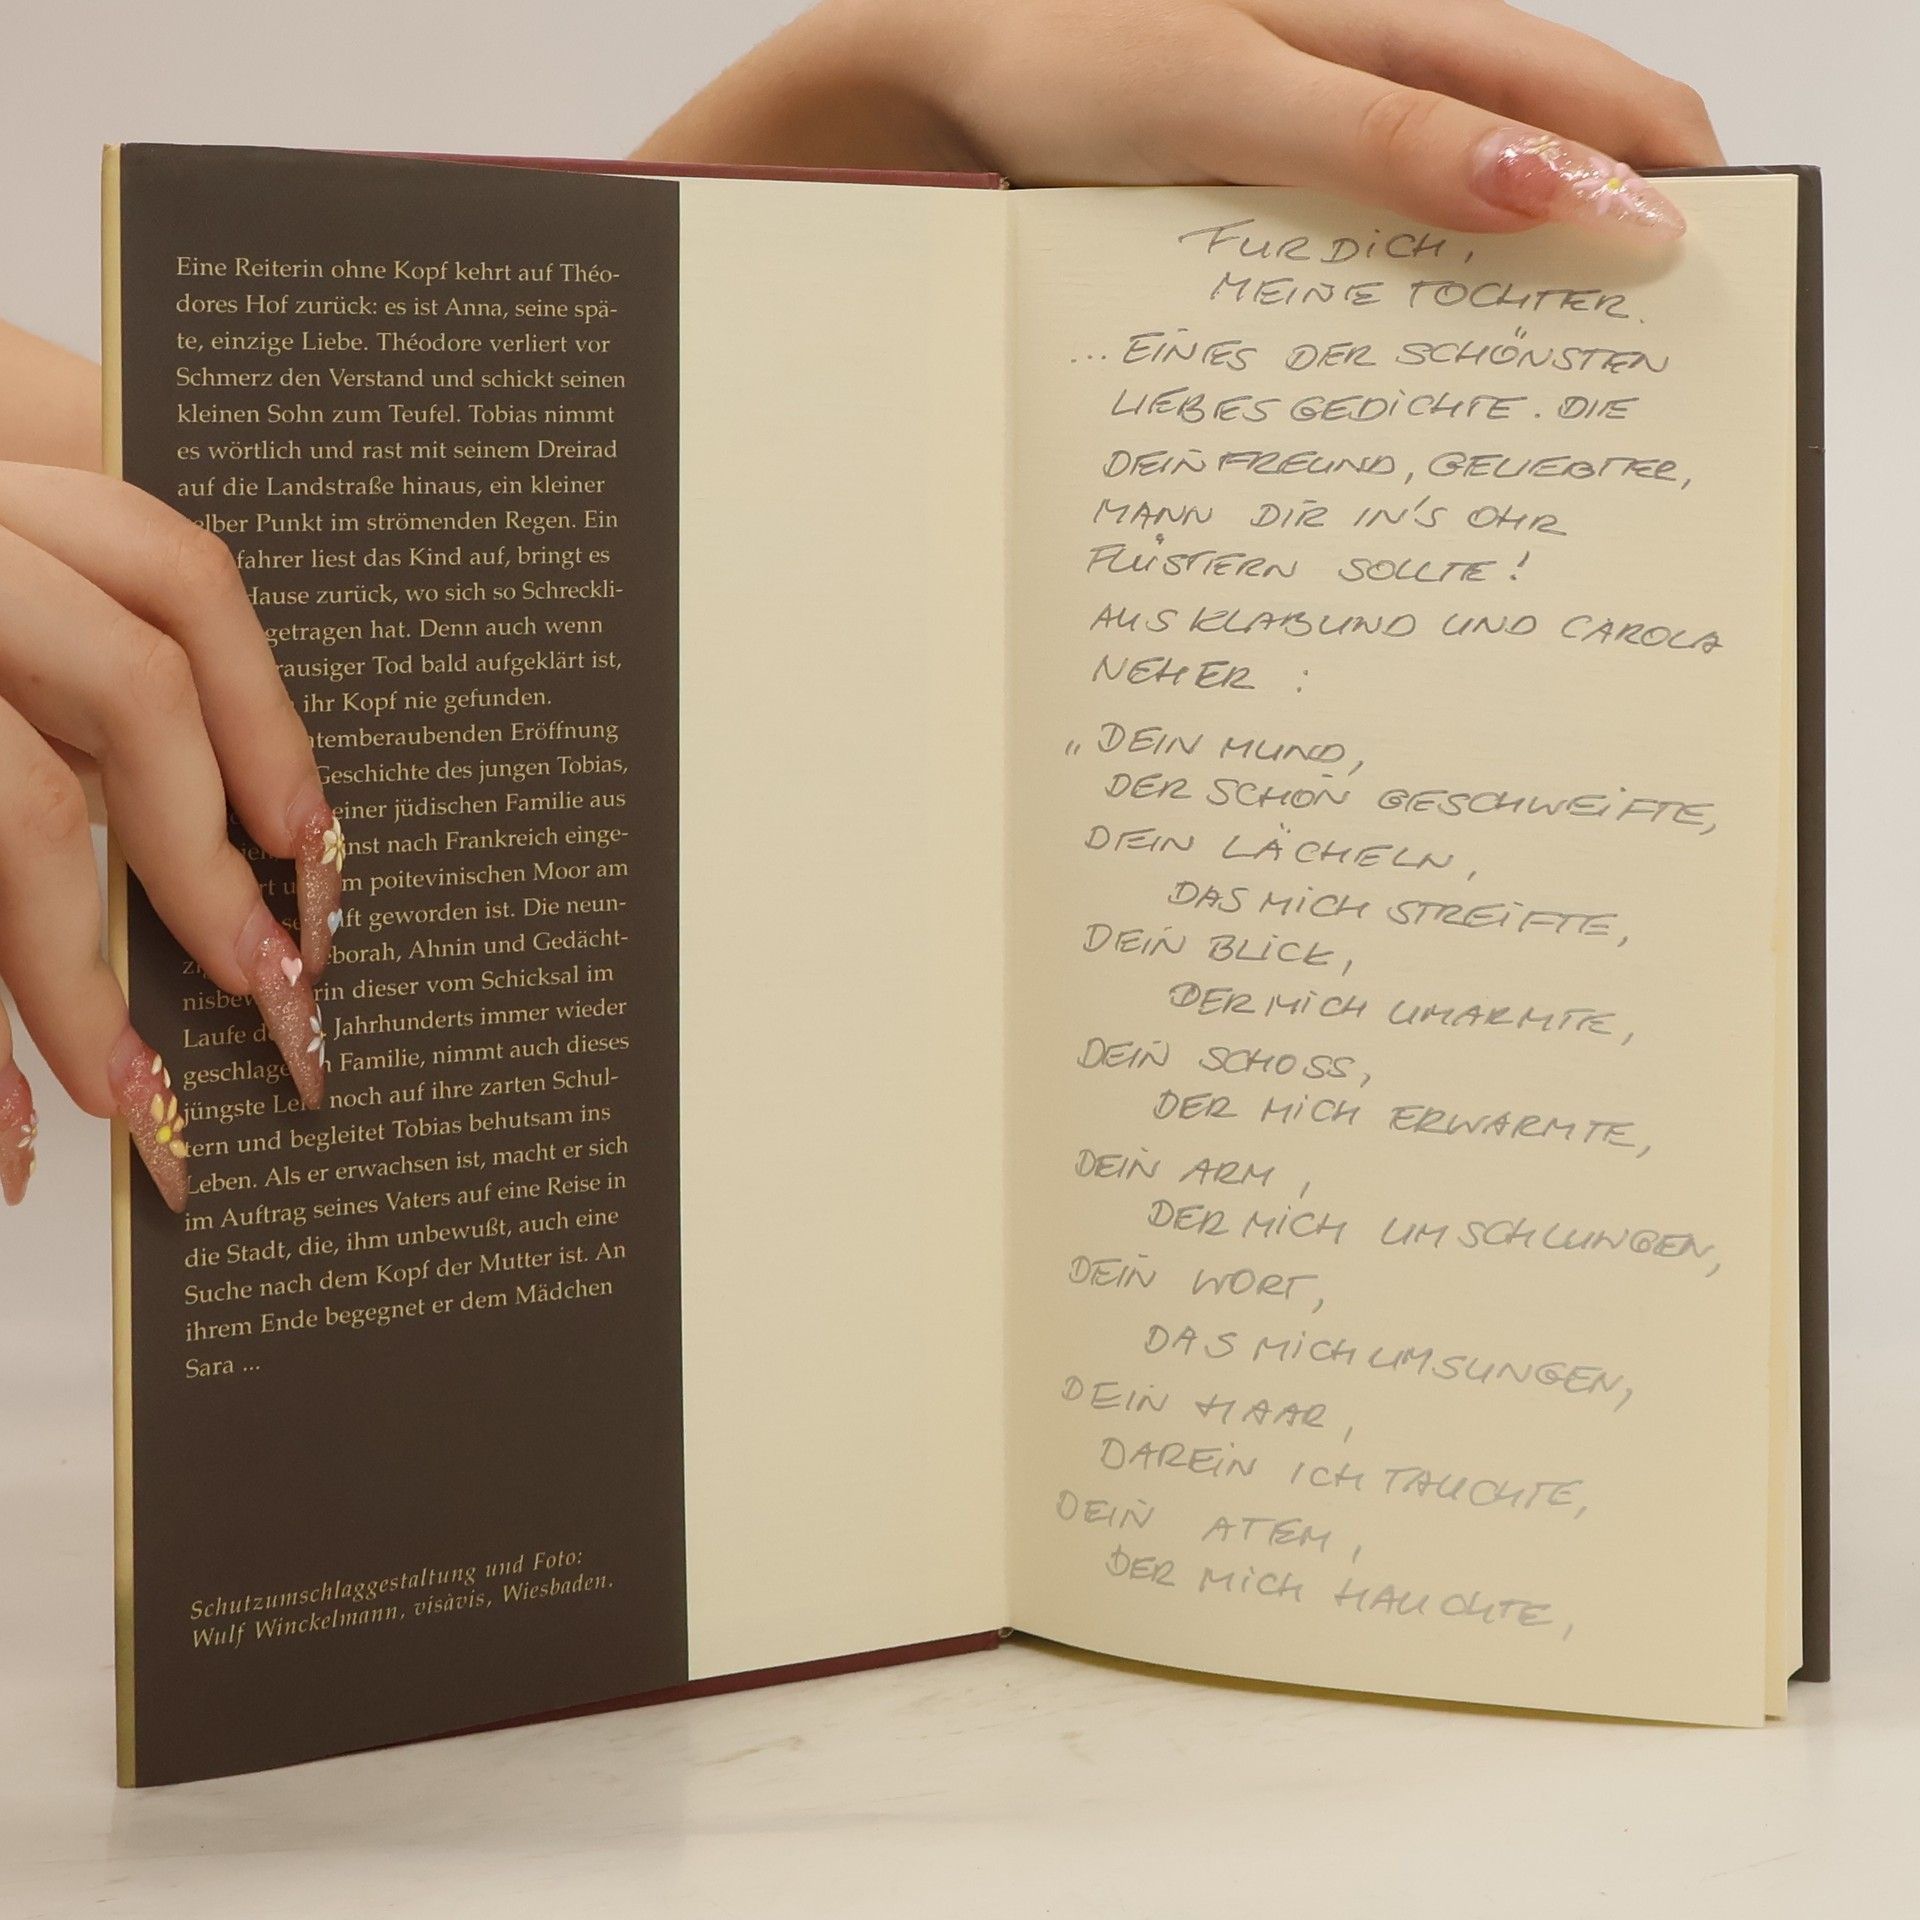 Eine Reiterin ohne Kopf kehrt auf Théo-
dores Hof zurück: es ist Anna, seine spä-
te, einzige Liebe. Théodore verliert vor
Schmerz den Verstand und schickt seinen
kleinen Sohn zum Teufel. Tobias nimmt
es wörtlich und rast mit seinem Dreirad
auf die Landstraße hinaus, ein kleiner
elber Punkt im strömenden Regen. Ein
fahrer liest das Kind auf, bringt es
Hause zurück, wo sich so Schreckli-
getragen hat. Denn auch wenn
rausiger Tod bald aufgeklärt ist,
ihr Kopf nie gefunden.
temberaubenden Eröffnung
Geschichte des jungen Tobias,
einer jüdischen Familie aus
inst nach Frankreich einge-
m poitevinischen Moor am
ft geworden ist. Die neun-
borah, Ahnin und Gedächt-
nisbew rin dieser vom Schicksal im
Laufe d Jahrhunderts immer wieder
geschlage n Familie, nimmt auch dieses
jüngste Le noch auf ihre zarten Schul-
tern und begleitet Tobias behutsam ins
Leben. Als er erwachsen ist, macht er sich
im Auftrag seines Vaters auf eine Reise in
die Stadt, die, ihm unbewußt, auch eine
Suche nach dem Kopf der Mutter ist. An
ihrem Ende begegnet er dem Mädchen
Sara ...
Schutzumschlaggestaltung und Foto:
Wulf Winckelmann, visàvis, Wiesbaden.
FUR DICH,
MEINE TOCHTER.
... EINES DER SCHÖNSTEN
LIEBESGEDICHTE. DIE
DEIN FREUND, GELIEBTER,
MANN DIR IN'S OHR
FLÜSTERN SOLLTE!
AUS KLABUND UND CAROLA
NEHER :
„DEIN MUND,
DER SCHÖN GESCHWEIFTE,
DEIN LÄCHELN,
DAS MICH STREIFTE,
DEIN BLICK,
DER MICH UMARMTE,
DEIN SCHOSS,
DER MICH ERWARMTE,
DEIN ARM,
DER MICH UMSCHLUNGEN,
DEIN WORT,
DAS MICH UMSUNGEN,
DEIN HAAR,
DAREIN ICH TAUCHTE,
DEIN ATEM,
DER MICH HAUCHTE,